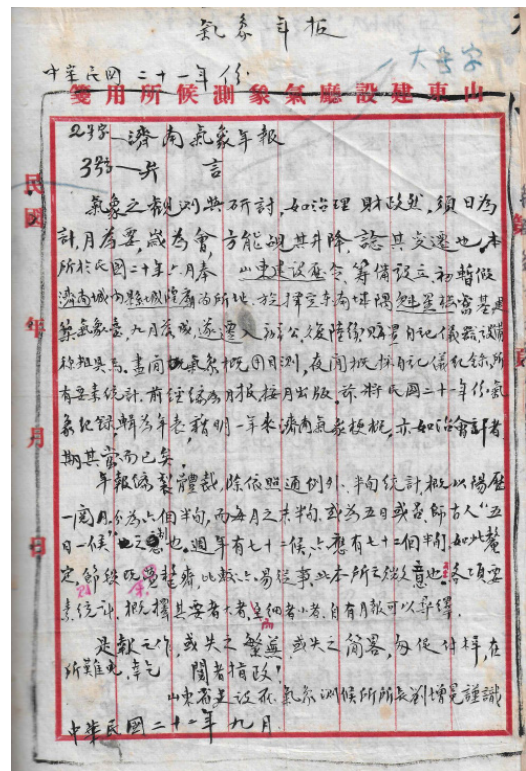 氣象年报
大号字
中華民國二十一年份
山東建設廳氣象測候所用箋
2号字—濟南氣象年報
3号—弁言
氣象之观测與研討，如治理財政然，須日為
計，月為要，歲為會，方能觇其升降，諗其交遷也，本
所於民國二十年六月奉 山東建设廳令，籌備設立，初暫假
濟南城内縣城隍廟為所址，旋擇定東南城隅魁星樓舊基建
築氣象臺，九月落成，遂遷入辦公，後陸續購置自记儀器，設備
粗具焉，晝間氣象概用目測，夜間概採自记儀纪錄，所
有要素统计，前經编為月报，按月出版，兹將民國二十一年份氣
象纪錄，輯為年表，藉明一年來濟南氣象梗概，亦如治會計者
期其當而已矣，
年報编製體裁，除依照通例外，半旬统计，概以陽歷
一個月分為六個半旬，而每月之末半旬，或為五日或否，師古人“五
日一候”之制也，週年有七十二候，亦應有七十二個半旬，如此釐
定，節段既整齊，比較亦易從事，此本所之微意也，各項要
素统计，概擇其要者大者，至细者小者，自有月報可以尋繹，
是報之作，或失之繁蕪，或失之簡畧，匆促付梓，在
所難免，乞 閱者指政！
山东省建设厅氣象測候所所長劉增冕謹識
中華民國二十二年九月
民國 年 月 日